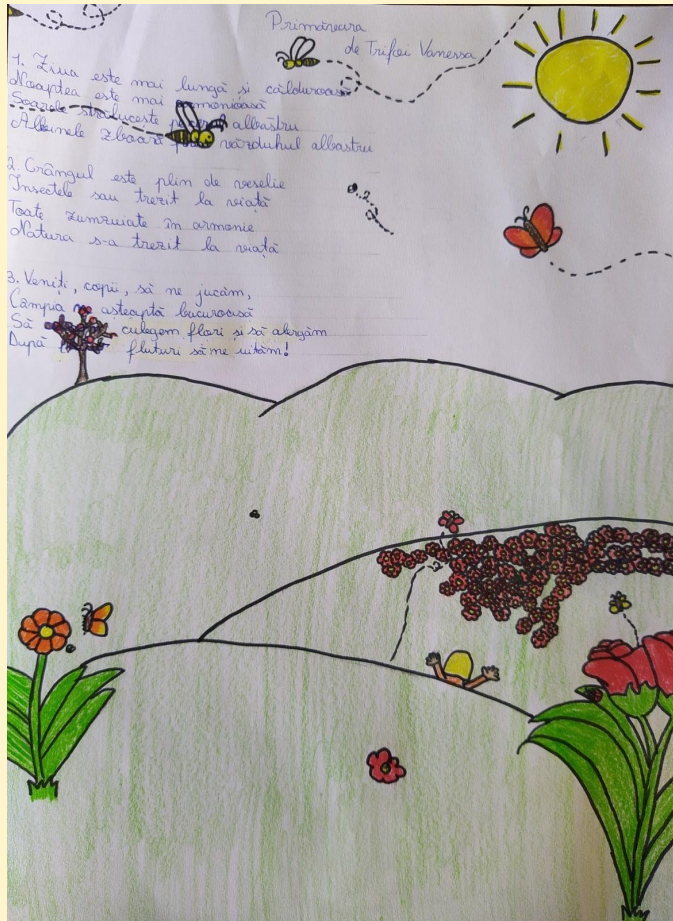 Primăvara
de Trifoi Vanessa
1. Ziua este mai lungă și călduroasă
Noaptea este mai armonioasă
Soarele strălucește pe cerul albastru
Albinele zboară prin văzduhul albastru
2. Crângul este plin de veselie
Insectele sau trezit la viață
Toate zumzuiate în armonie
Natura s-a trezit la viață
3. Veniți, copii, să ne jucăm,
Câmpia ne așteaptă bucuroasă
Să culegem flori și să alergăm
După fluturi să ne uităm!